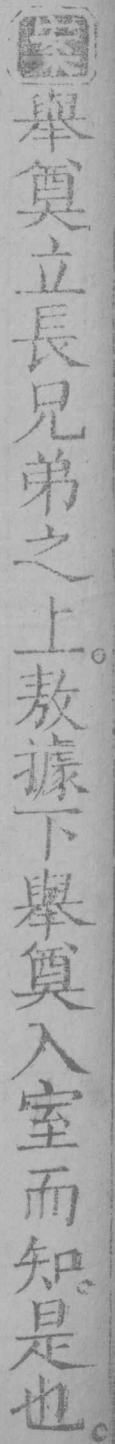 案舉奠立長兄弟之上。敖據下舉奠入室而知。是也。